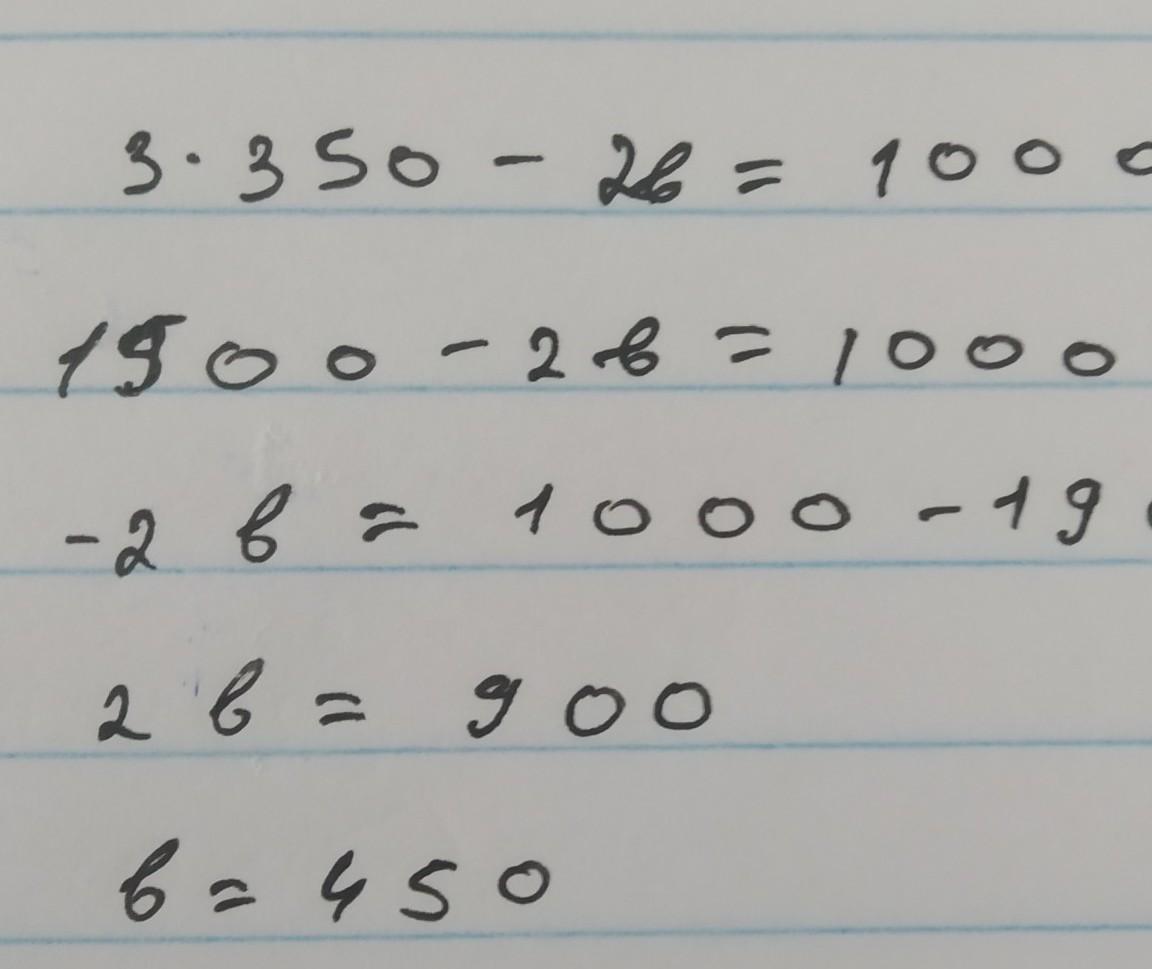 3 · 350 - 2в = 1000
1900 - 2в = 1000
-2в = 1000 - 19
2в = 900
в = 450